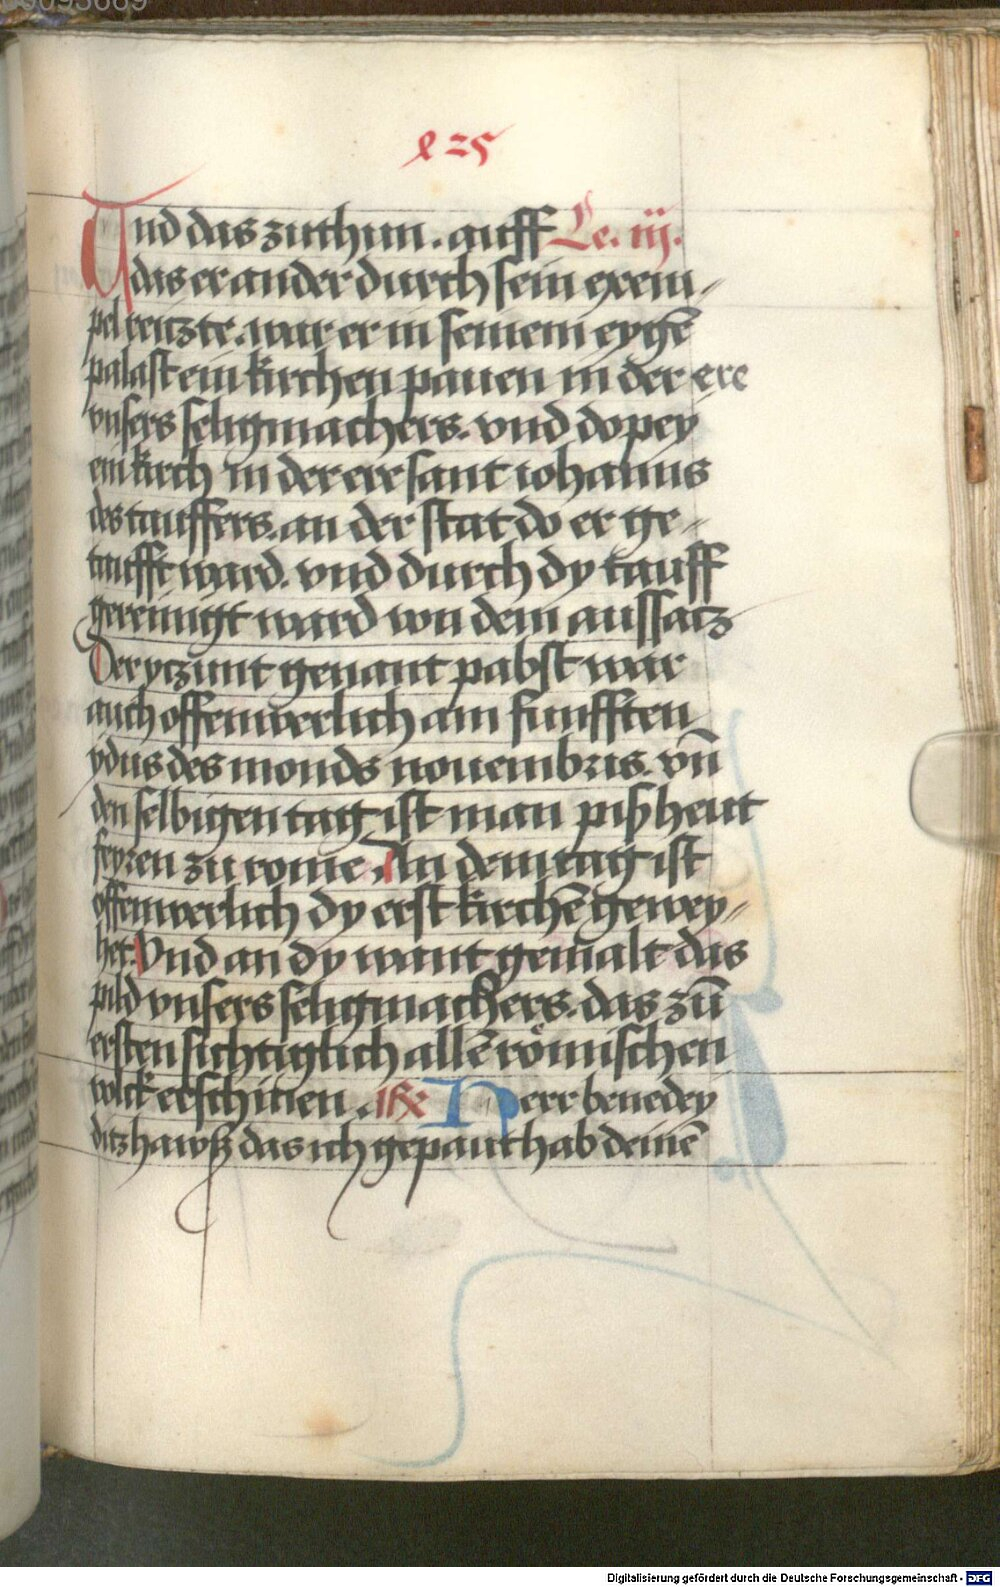 Vnd das zuthun. auff Le. iij.
das er ander durch sein exem-
pel reitzte. war er in seinem eygē
palast ein kirchen pauen in der ere
vnsers seligmachers. vnd dopey
ein kirch in der ere sant iohannis
des tauffers. an der stat do er ge-
taufft ward. vnd durch dy tauff
gereinigt ward von dem aussatz
Der yczunt genant pabst war
auch offenwerlich am funfften
ydus des monds nouembris. vn̄
den selbigen tag ist man piß heut
feyren zu rome. An dem tag ist
offenwerlich dy erst kirchē gewey-
het. Vnd an dy want gemalt das
pild vnsers seligmachers. das zū
ersten sichtiglich allē römischen
volck erschinen. Herr benedey
ditz hawß das ich gepaut hab deinē
Digitalisierung gefördert durch die Deutsche Forschungsgemeinschaft - DFG